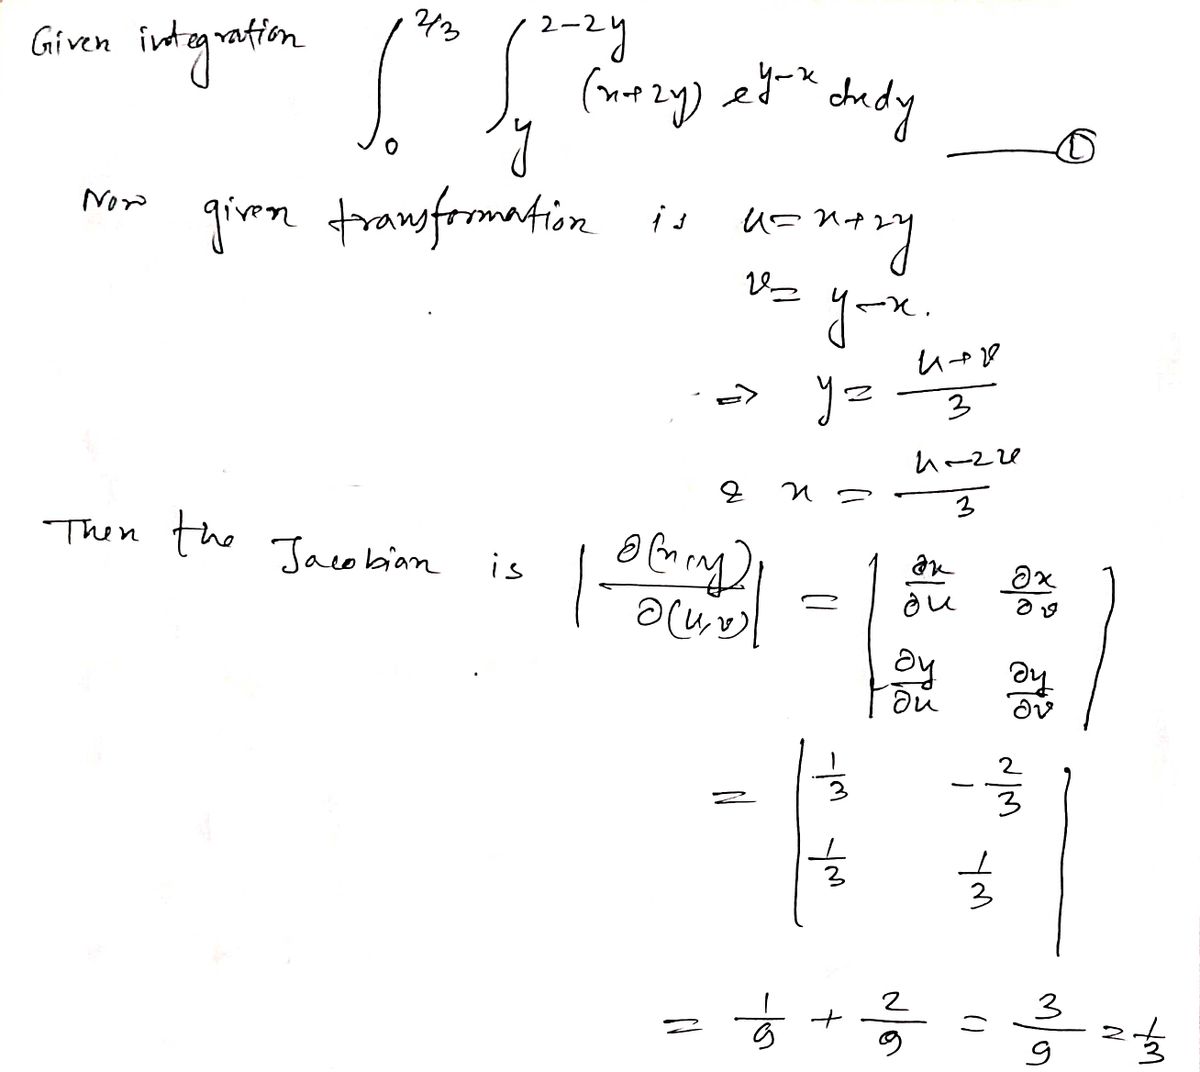 Given integration ∫_0^{2/3} ∫_y^{2-2y} (x+2y) e^{y-x} dxdy —— ①
Now given transformation is u = x+2y
v = y-x.
⇒ y = (u+v)/3
& x = (u-2v)/3
Then the Jacobian is |∂(x,y)/∂(u,v)| = | ∂x/∂u ∂x/∂v |
| ∂y/∂u ∂y/∂v |
= | 1/3 -2/3 |
| 1/3 1/3 |
= 1/9 + 2/9 = 3/9 = 1/3